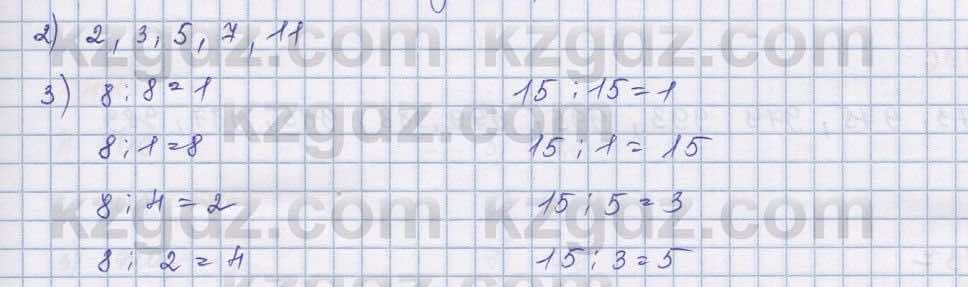 2) 2, 3, 5, 7, 11
3) 8 : 8 = 1 15 : 15 = 1
8 : 1 = 8 15 : 1 = 15
8 : 4 = 2 15 : 5 = 3
8 : 2 = 4 15 : 3 = 5
kzgdz.com kzgdz.com
kzgdz.com
kzgdz.com kzgdz.com